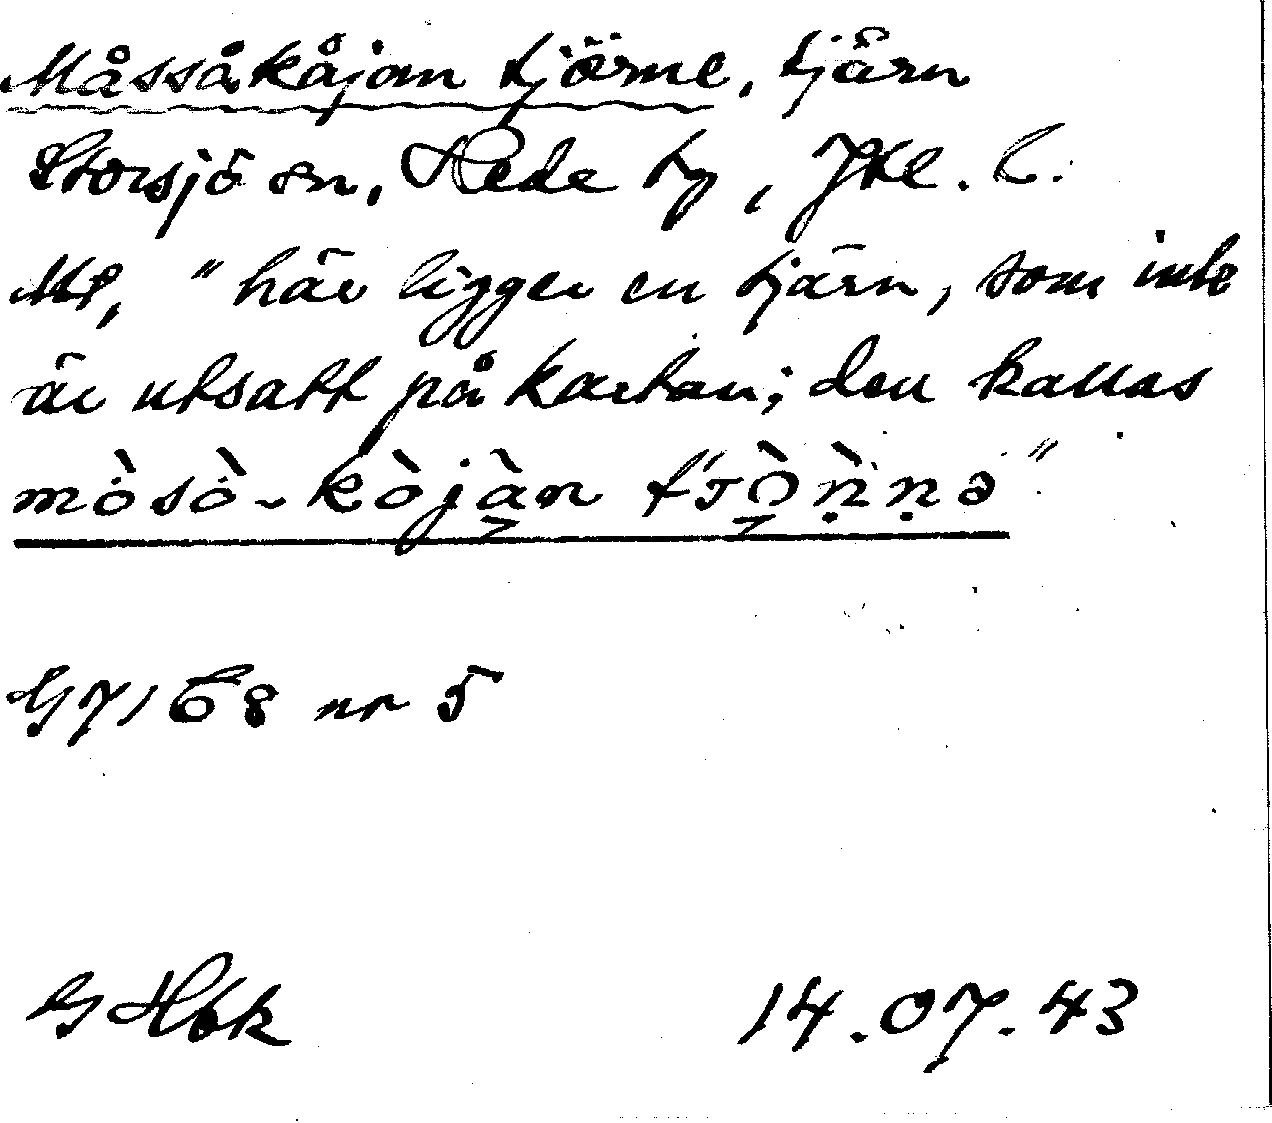 Måssåkåjan tjörne, tjärn
Storsjö sn, Hede by, Jtl. l.
Ml, "här ligger en tjärn, som inte
är utsatt på kartan; den kallas
mòsò-kòjàn t'ɪò̱ṇ̀ṇə"
G7168 nr 5
G Hbk 14.07.43